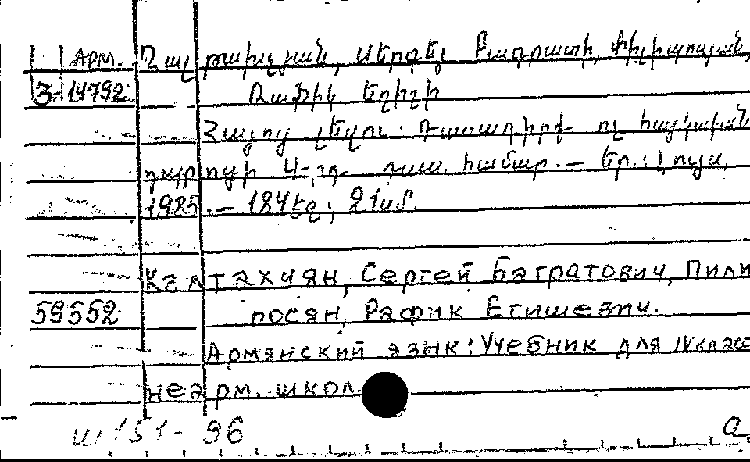 АРМ. Ղալթախչյան, Սերգեյ Բագրատի, Փիլիպոսյան,
3-14792 Ռաֆիկ Եղիշի
Հայոց լեզու: Դասագիրք ոչ հայկական
դպրոցի 4-րդ դաս. համար. — Եր.: Լույս,
1985. — 184 էջ; 21 սմ.
Калтахчян, Сергей Багратович, Пили
59552 посян, Рафик Егишевич.
Армянский язык: Учебник для IV класс
неарм. школ
151-96 а